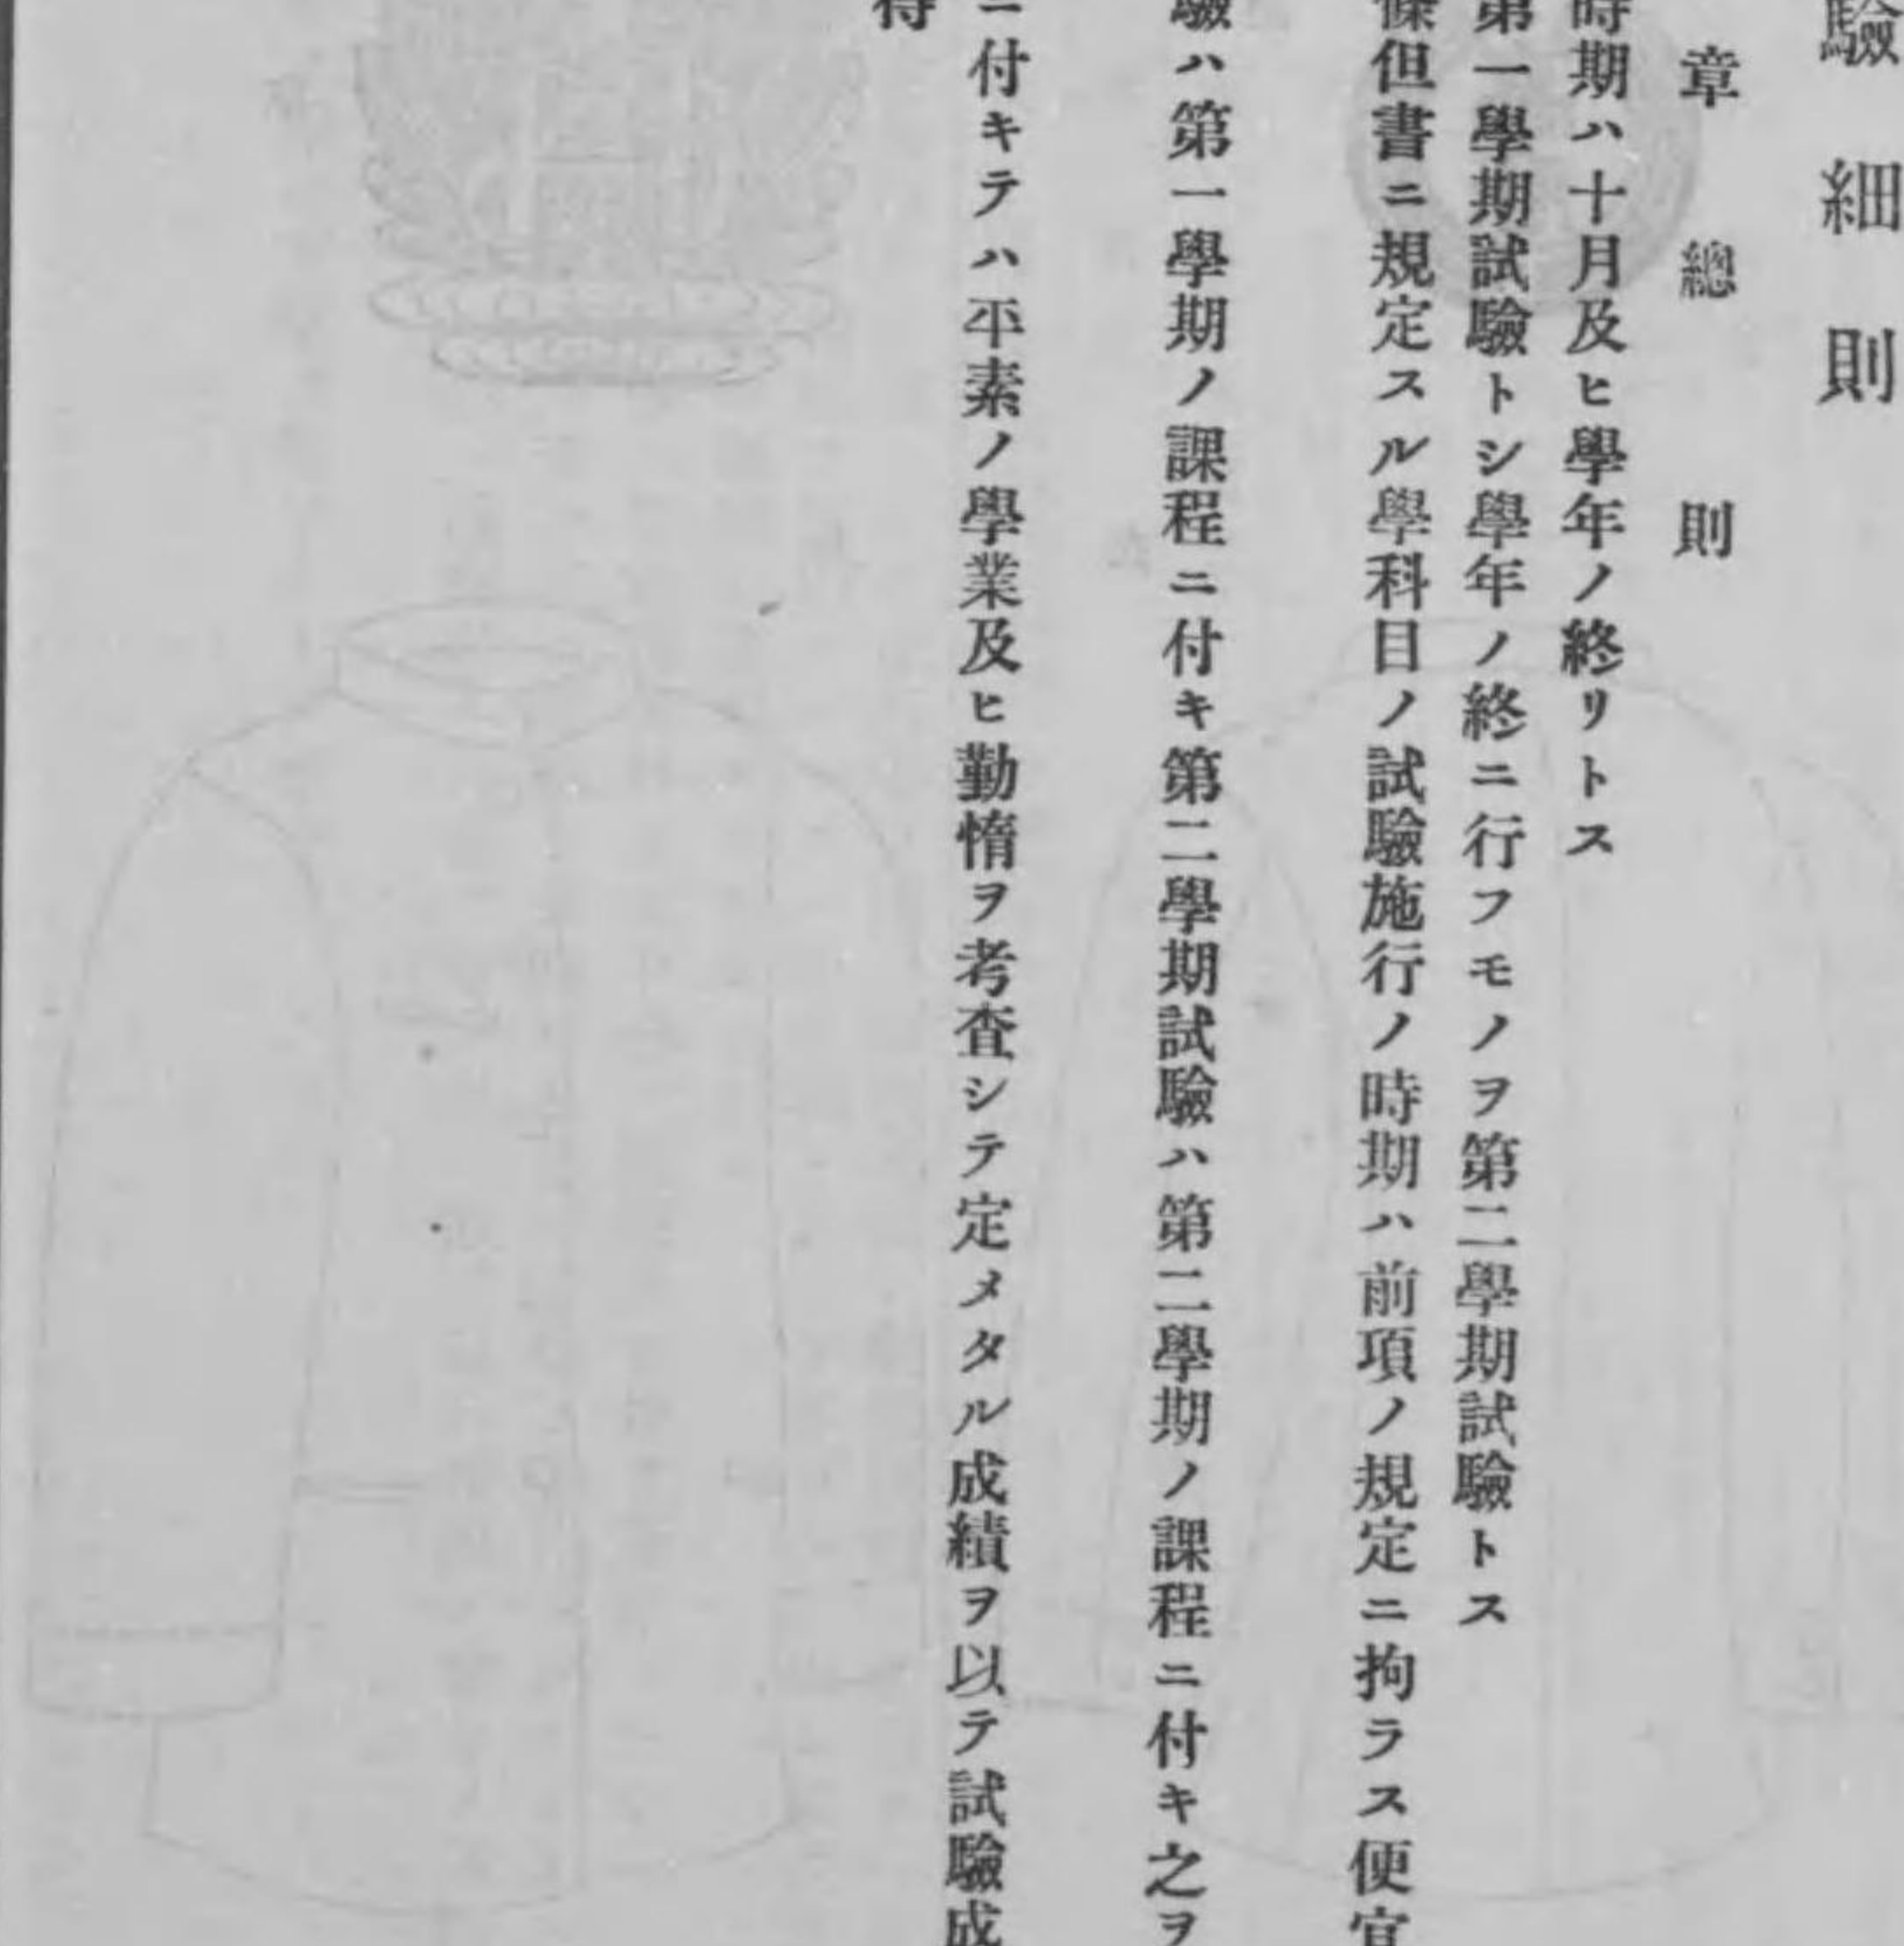 驗細則
章總則
時期ハ十月及ヒ學年ノ終リトス
第一學期試驗トシ學年ノ終ニ行フモノヲ第二學期試驗トス
條但書ニ規定スル學科目ノ試驗施行ノ時期ハ前項ノ規定ニ拘ラス便宜
驗ハ第一學期ノ課程ニ付キ第二學期試驗ハ第二學期ノ課程ニ付キ之ヲ
ニ付キテハ平素ノ學業及ヒ勤惰ヲ考査シテ定メタル成績ヲ以テ試驗成
得